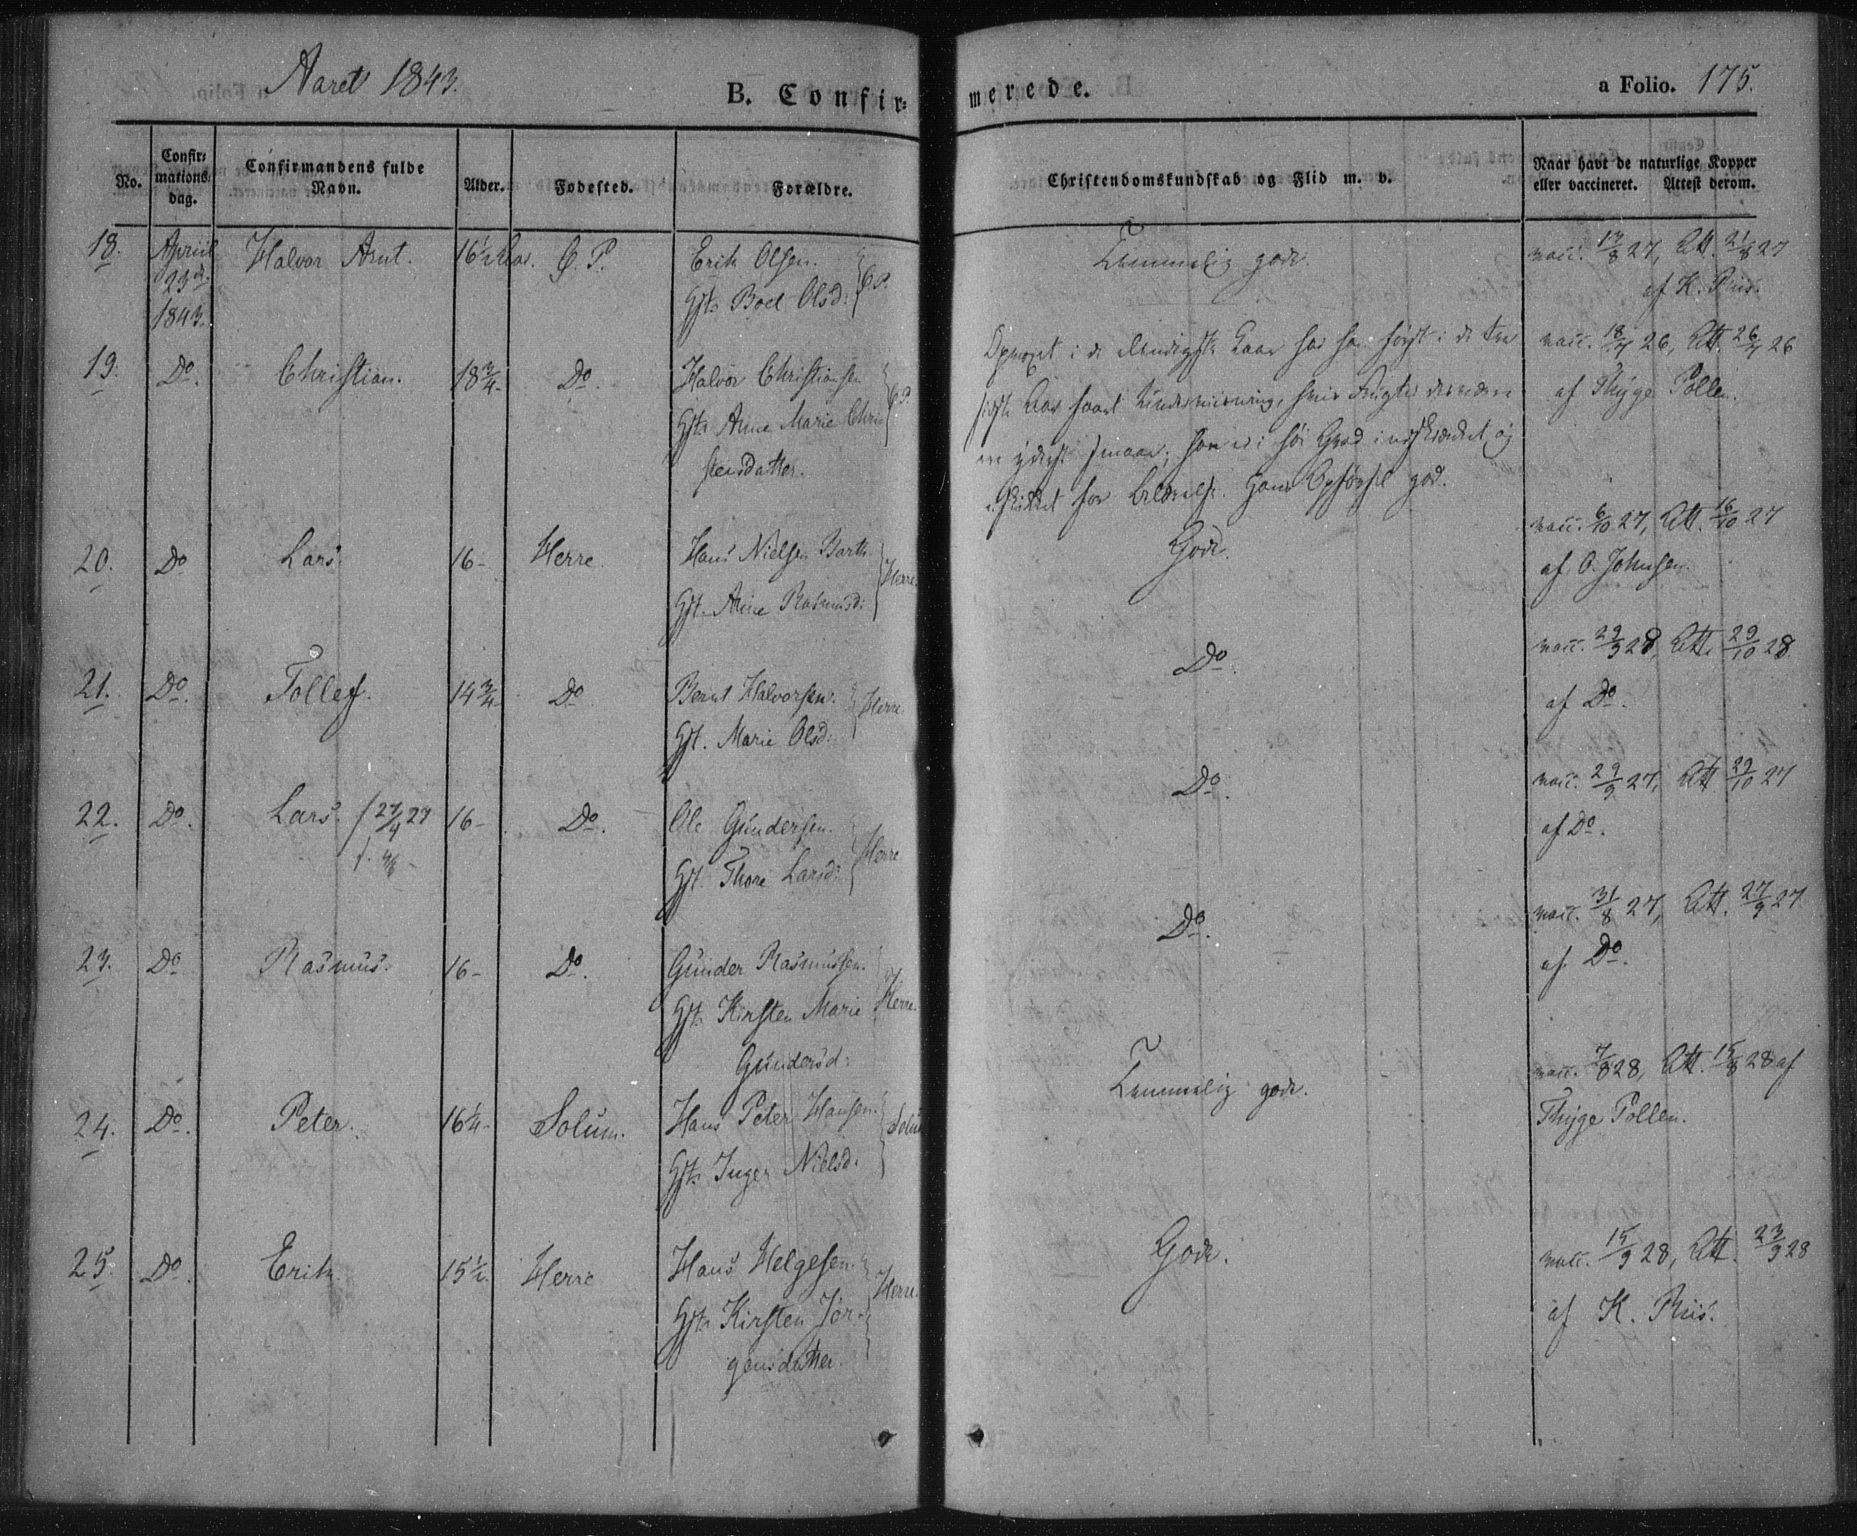 Aaret 1843.
B. Confirmerede.
a Folio. 175.
No.
Confirmationsdag.
Confirmandens fulde Navn.
Alder.
Fødested.
Forældre.
Christendomskundskab og Flid m. v.
Naar havt de naturlige Kopper eller vaccineret. Attest derom.
18. April 23de 1843. Halvor Arnt. 16½ Aar. E. P.
Erik Olsen.
Gjt. Boel Olsd: E.P.
Temmelig gode.
vacc. 17/8 27, Att. 21/8 27
af K. Riis.
19. Do. Christian. 18¾ Do.
Halvor Christiansen
Gjt. Anne Marie Chri E.P.
stensdatter.
i de Aar har han først i de tre
sidste Aar faaet Underviisning, hvis Frugter
er yderst smaae; han er i høi Grad indskrænket og
for. Hans Opførsel god.
vacc. 18/7 26, Att. 26/7 26
af Thyge Pollen.
20. Do Lars. 16- Herre.
Hans Nielsen Barth.
Gjt. Anne Rasmusd: Herre.
Gode.
vacc. 6/10 27, Att. 16/10 27
af O. Johnsen.
21. Do. Tollef. 14¾ Do
Bernt Halvorsen.
Gjt. Marie Olsd: Herre.
Do.
vacc. 29/9 28, Att. 29/10 28
af Do.
22. Do. Lars. f 27/4 27 16- Do.
Ole Gundersen.
Gjt. Thore Larsd: Herre
Do.
vacc. 29/9 27, Att 29/10 27
af Do.
23. Do Rasmus. 16- Do.
Gunder Rasmussen.
Gjt. Kirsten Marie Herre.
Gundersd:
Do.
vacc. 31/8 27, Att. 27/9 27
af Do.
24. Do. Peter. 16¼- Solum.
Hans Peter Hansen. Solum
Gjt. Inger Nielsd:
Temmelig gode.
vacc. 7/8 28, Att. 15/8 28 af
Thyge Pollen.
25. Do. Erik. 15½. Herre
Hans Helgesen. Herre.
Gjt. Kirsten Jør-
gensdatter.
Gode.
vacc. 15/9 28, Att. 23/9 28
af K. Riis.